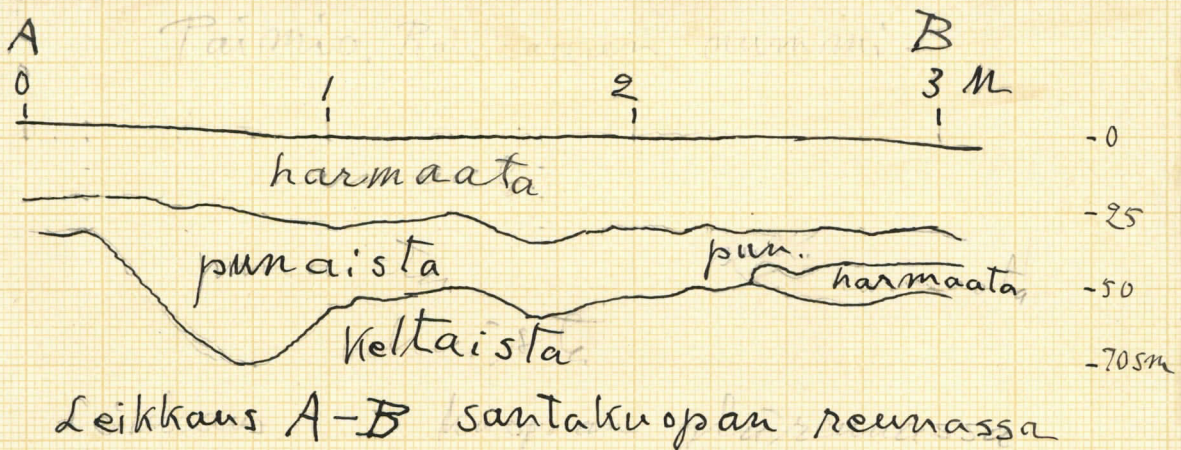 A B
0 1 2 3 M
-0
harmaata
-25
punaista pun.
harmaata
-50
Keltaista
-70 sm
Leikkaus A-B santakuopan reunassa